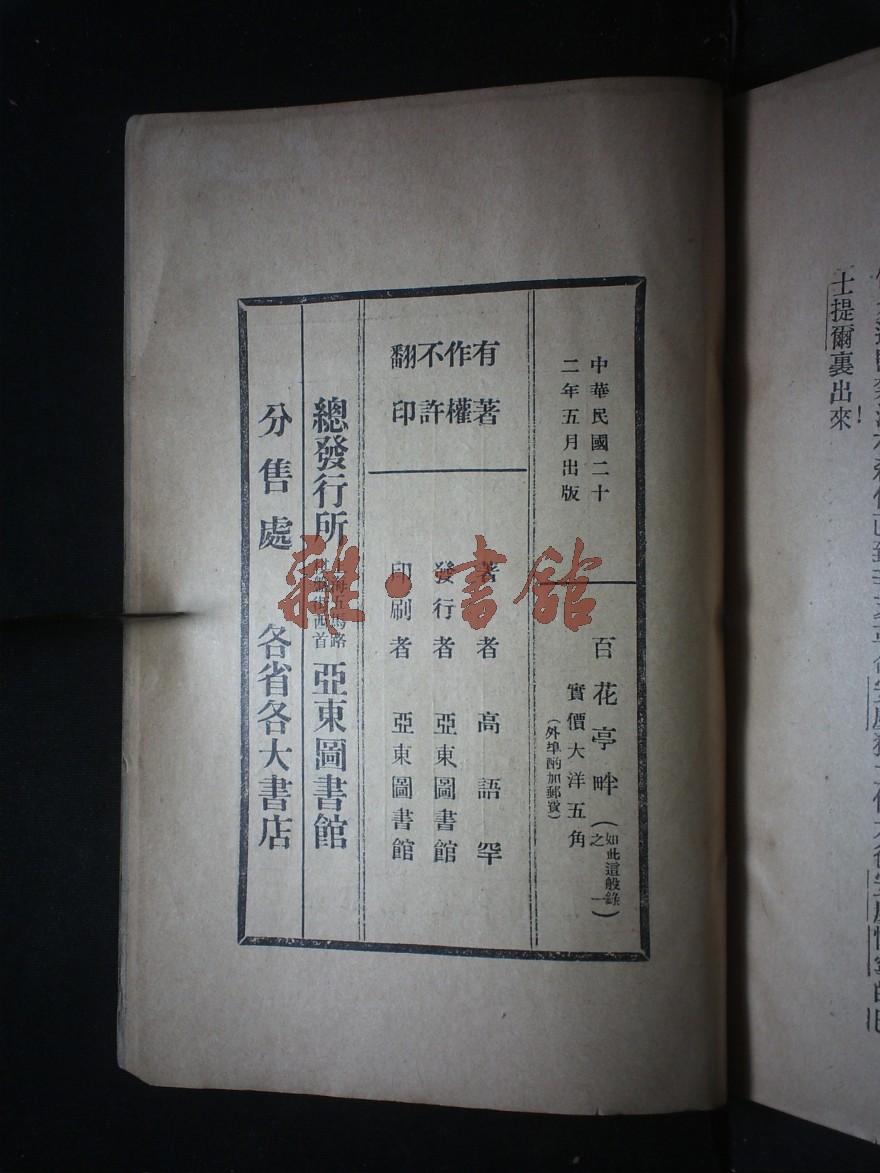 士提爾裏出來！
中華民國二十
二年五月出版
百花亭畔（如此這般錄之一）
實價大洋五角
（外埠酌加郵費）
有著
作權
不許
翻印
著者 高語罕
發行者 亞東圖書館
印刷者 亞東圖書館
總發行所 上海五馬路棋盤街西首 亞東圖書館
分售處 各省各大書店
雜·書館